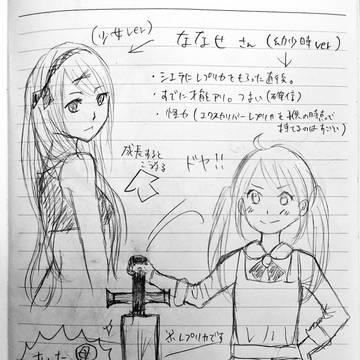 (少女ver)
ななせ さん (幼少時ver)
・シエラにレプリカをもらった直後。
・すでに才能アリ。つよい(確信)
・怪力(エクスカリバーレプリカを の時点で
持てるのはすごい)
成長すると
こうなる
ドヤ!!
※レプリカです